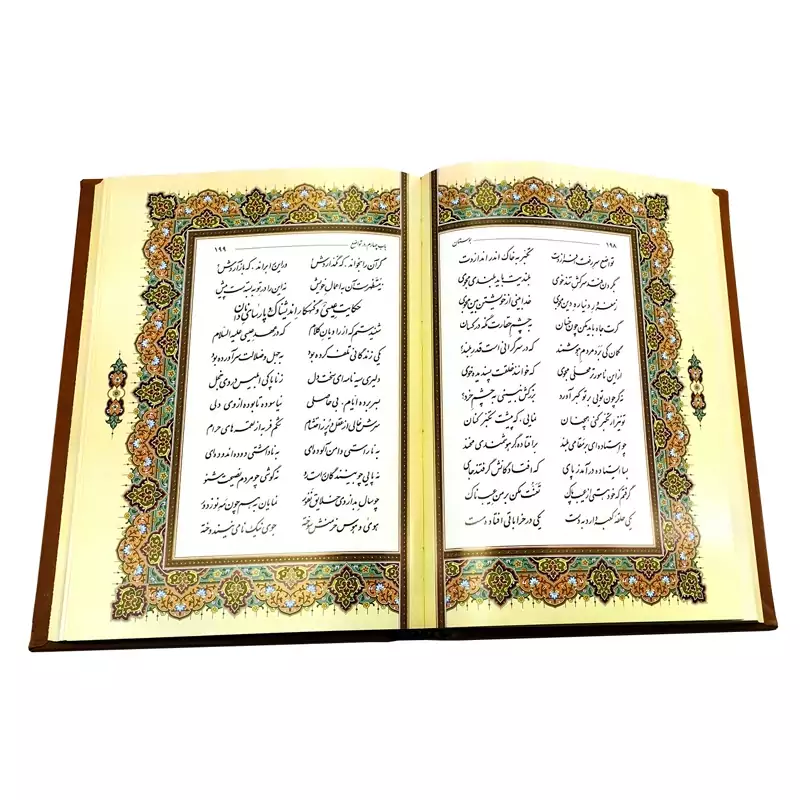 ۱۹۸ بوستان
تواضع سر رفعت افرازدت تکبر به خاک اندر اندازدت
به گردن فتد سرکش تندخوی بلندیت باید بلندی مجوی
ز مغرور دنیا ره دین مجوی خدابینی از خویشتن بین مجوی
گرت جاه باید مکن چون خسان به چشم حقارت نگه در کسان
گمان کی برد مردم هوشمند که در سرگرانی است قدر بلند
از این نامورتر محلی مجوی که خوانند خلقت پسندیده خوی
نه گر چون تویی بر تو کبر آورد بزرگش نبینی به چشم خرد؟
تو نیز ار تکبر کنی همچنان نمایی، که پیشت تکبر کنان
چو استاده ای بر مقامی بلند بر افتاده گر هوشمندی مخند
بسا ایستاده درآمد ز پای که افتادگانش گرفتند جای
گرفتم که خود هستی از عیب پاک تعنت مکن بر من عیب ناک
یکی حلقه کعبه دارد به دست یکی در خراباتی افتاده مست
باب چهارم در تواضع ۱۹۹
گر آن را بخواند، که نگذاردش؟ ور این را براند، که باز آردش؟
نه مستظهرست آن به اعمال خویش نه این را در توبه بسته ست پیش
حکایت عیسی و گنهکار اندیشناک و پارسای نادان
شنیدستم از راویان کلام که در عهد عیسی علیه السلام
یکی زندگانی تلف کرده بود به جهل و ضلالت سر آورده بود
دلیری سیه نامه ای سخت دل ز ناپاکی ابلیس در وی خجل
به سر برده ایام، بی حاصلی نیاسوده تا بوده از وی دلی
سرش خالی از عقل و پر ز احتشام شکم فربه از لقمه های حرام
به ناراستی دامن آلوده ای به ناداشتی دوده اندوده ای
نه پایی چو بینندگان راست رو نه گوشی چو مردم نصیحت شنو
چو سال بد از وی خلایق نفور نمایان به هم چون مه نو ز دور
هوی و هوس خرمنش سوخته جوی نیک نامی نیندوخته